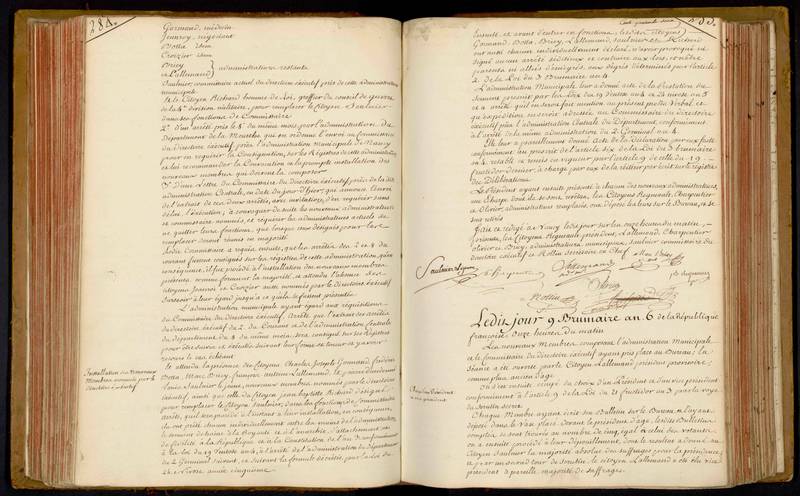 284.
Gormand, médecin
Jeanroy, négociant
Botta idem
Croizier idem
Briey
et Lallemand } administrateurs restants
Saulnier, commissaire actuel du directoire exécutif près de cette administration
municipale.
Et le Citoyen Richard homme de Loi, greffier du conseil de guerre
de la 4e division militaire, pour remplacer le Citoyen Saulnier
dans ses fonctions de Commissaire
2° d'un arrêté pris le 8 du même mois par l'administration du
Département de la Meurthe, qui en ordonne l'envoi au Commissaire
du Directoire exécutif près l'administration Municipale de Nancy
pour en requérir la Consignation, sur les Registres de cette administration
et lui recommander la Convocation et la prompte installation des
nouveaux membres qui doivent la composer
3° d'une Lettre du Commissaire du directoire exécutif près de la dite
administration Centrale, en date du jour d'hier, qui annonce l'envoi
de l'extrait de ces deux arrêtés, avec invitation, d'en requérir sans
délai, l'exécution, de convoquer de suite les nouveaux administrateurs
et commissaire nommés, et requérir les administrateurs actuels de
ne quitter leurs fonctions, que lorsque ceux désignés pour les
remplacer seront réunis en majorité
Ledit Commissaire a requis ensuite, que les arrêtés des 2 et 8 du
courant fussent consignés sur les registres de cette administration, qu'en
conséquence, il fut procédé à l'installation des nouveaux membres,
présents, comme formant la majorité, et attendu l'absence des
citoyens Jeanroi et Croizier aussi nommés par le Directoire exécutif
surseoir à leur égard jusqu'à ce qu'ils se fussent présentés
L'administration municipale ayant égard aux réquisitions
du Commissaire du Directoire exécutif. Arrête que l'extrait des arrêtés
du directoire exécutif du 2 du Courant et de l'administration Centrale
du département du 8 du même mois sera consigné sur ses Registres
pour être suivis et exécutés suivant leur forme et teneur et y avoir
recours le cas échéant
Installation des Nouveaux
Membres nommés par le
directoire exécutif
Et attendu la présence des Citoyens Charles Joseph Gormand, frédéric
Botta, Marc Briey, françois antoine Lallemand,
Louis Saulnier le jeune, nouveaux membres nommés par le directoire
exécutif, ainsi que celle du Citoyen jean baptiste Richard désigné
pour remplacer le Citoyen Saulnier, dans les fonctions de Commissaire
arrête, qu'il sera procédé à l'instant à leur installation, en conséquence,
ils ont prêté chacun individuellement entre les mains de l'administration
le serment de haine à la Royauté et à l'anarchie, d'attachement et
de fidélité à la République et à la Constitution de l'an 3 conformément
à la loi du 19 fructidor an 5, à l'arrêté de l'administration du département
du 2 Germinal suivant, et suivant la formule décrétée, par la Loi du
24 nivôse année cinquième
Ensuite et avant d'entrer en fonctions, lesdits Citoyens
Gormand, Botta, Briey, Lallemand, Saulnier et Richard
ont chacun individuellement déclaré, n'avoir provoqué ni
signé aucun arrêté séditieux et contraire aux lois, et n'être
parents ni alliés d'émigrés, aux degrés déterminés par l'article
2 de la Loi du 3 Brumaire an 4
L'administration Municipale leur a donné acte de la Prestation du
Serment prescrit par les Lois des 19 fructidor an 5 et 24 nivôse an 5
et a arrêté qu'il en serait fait mention au présent procès Verbal et
qu'expédition en serait adressée, au Commissaire du directoire
exécutif près l'administration Centrale du Département, conformément
à l'arrêté de la même administration du 2 Germinal an 4.
Elle leur a pareillement donné Acte de la déclaration par eux faite
conformément au prescrit de l'article six de la Loi du 3 brumaire
an 4 rétabli et remis en vigueur par l'article 9 de celle du 19
fructidor dernier, à charge par eux de la réitérer par écrit sur le registre
des Délibérations
Le Président ayant ensuite présenté à chacun des nouveaux administrateurs,
une Echarpe dont ils se sont revêtus, les Citoyens Regneault, Charpentier
et Olivier, administrateurs remplacés, ont déposé les leurs sur le Bureau, et se
sont retirés
Fait et rédigé à Nancy ledit jour sur les onze heures du matin,
présents, les Citoyens Regneault, président, Lallemand, Charpentier
Olivier et Briey, administrateurs municipaux, Saulnier commissaire du
directoire exécutif et Rollin secrétaire en Chef
Ledit jour 9 Brumaire an 6 de la République
françoise, onze heures du matin
Les nouveaux Membres, composant l'administration Municipale
et le commissaire du directoire exécutif ayant pris place au Bureau; la
séance a été ouverte par le Citoyen Lallemand président provisoire,
comme plus ancien d'âge.
On s'est ensuite occupé du choix d'un Président et d'un vice président
conformément à l'article 9 de la Loi du 21 fructidor an 3 par la voie
du Scrutin secret.
Chaque Membre ayant écrit son Bulletin sur le Bureau, et l'ayant
déposé dans le Vase placé devant le président d'âge, lesdits Bulletins
comptés, se sont trouvés au nombre de cinq, égal à celui des votants
on a ensuite procédé à leur dépouillement, dont le résultat a donné au
Citoyen Saulnier la majorité absolue des suffrages pour la présidence,
et par un second tour de scrutin, le citoyen Lallemand a été élu vice
président à pareille majorité de suffrages.